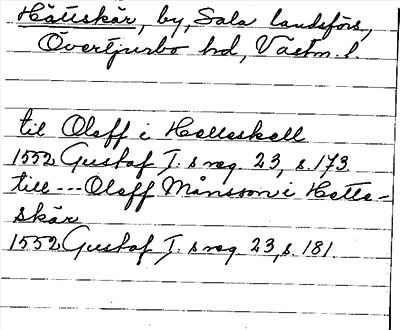 Hättskär, by, Sala landsförs,
Övertjurbo hd, Västm. l.
til Oloff i Helleskell
1552 Gustaf I. s reg. 23, s. 173
till --- Oloff Månsson i Hette-
skär
1552 Gustaf I. s reg. 23, s. 181.